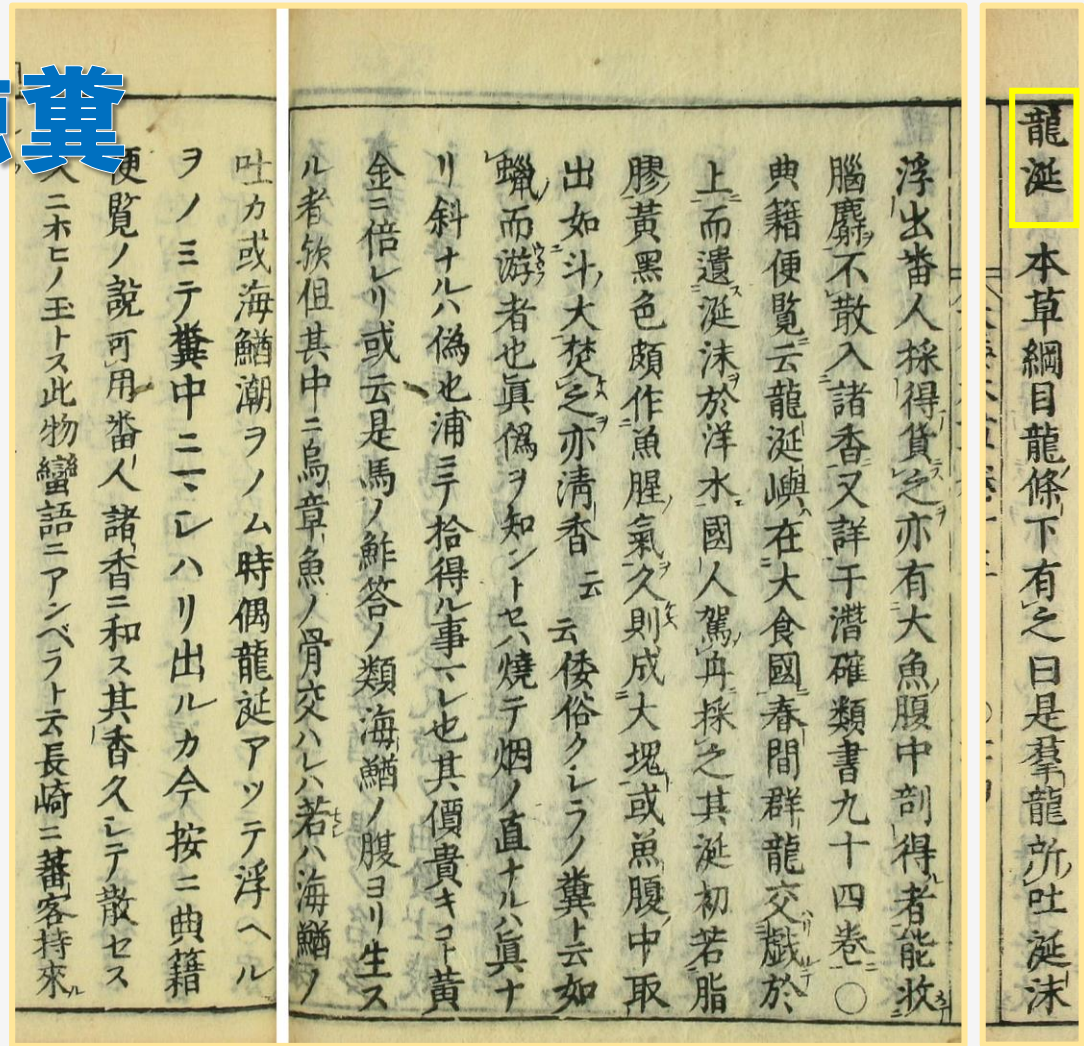 糞
龍涎 本草綱目龍條下有之曰是羣龍所吐涎沫
浮出番人採得貨之亦有大魚腹中剖得者能收
腦麝不散入諸香又詳于潛確類書九十四巻〇
典籍便覧云龍涎嶼在大食國春間群龍交戯於
上而遺涎沫於洋水國人駕舟採之其涎初若脂
膠黃黑色頗作魚腥氣久則成大塊或魚腹中取
出如斗大焚之亦清香云云倭俗クシラノ糞ト云如
蠟而游者也眞僞ヲ知ントセハ燒テ烟ノ直ナルハ眞ナ
リ斜ナルハ僞也浦ニテ拾得ル事マレ也其價貴キヿ黃
金ニ倍レリ或云是馬ノ鮓答ノ類海鰌ノ腹ヨリ生ス
ル者欤但其中ニ烏章魚ノ骨交ハレハ若ハ海鰌ノ
吐カ或海鰌潮ヲノム時偶龍延アツテ浮ヘル
ヲノミテ糞中ニマシハリ出ルカ今按ニ典籍
便覧ノ說可用番人諸香ニ和ス其香久シテ散セス
ニホヒノ玉トス此物蠻語ニアンベラト云長崎ニ蕃客持來ル